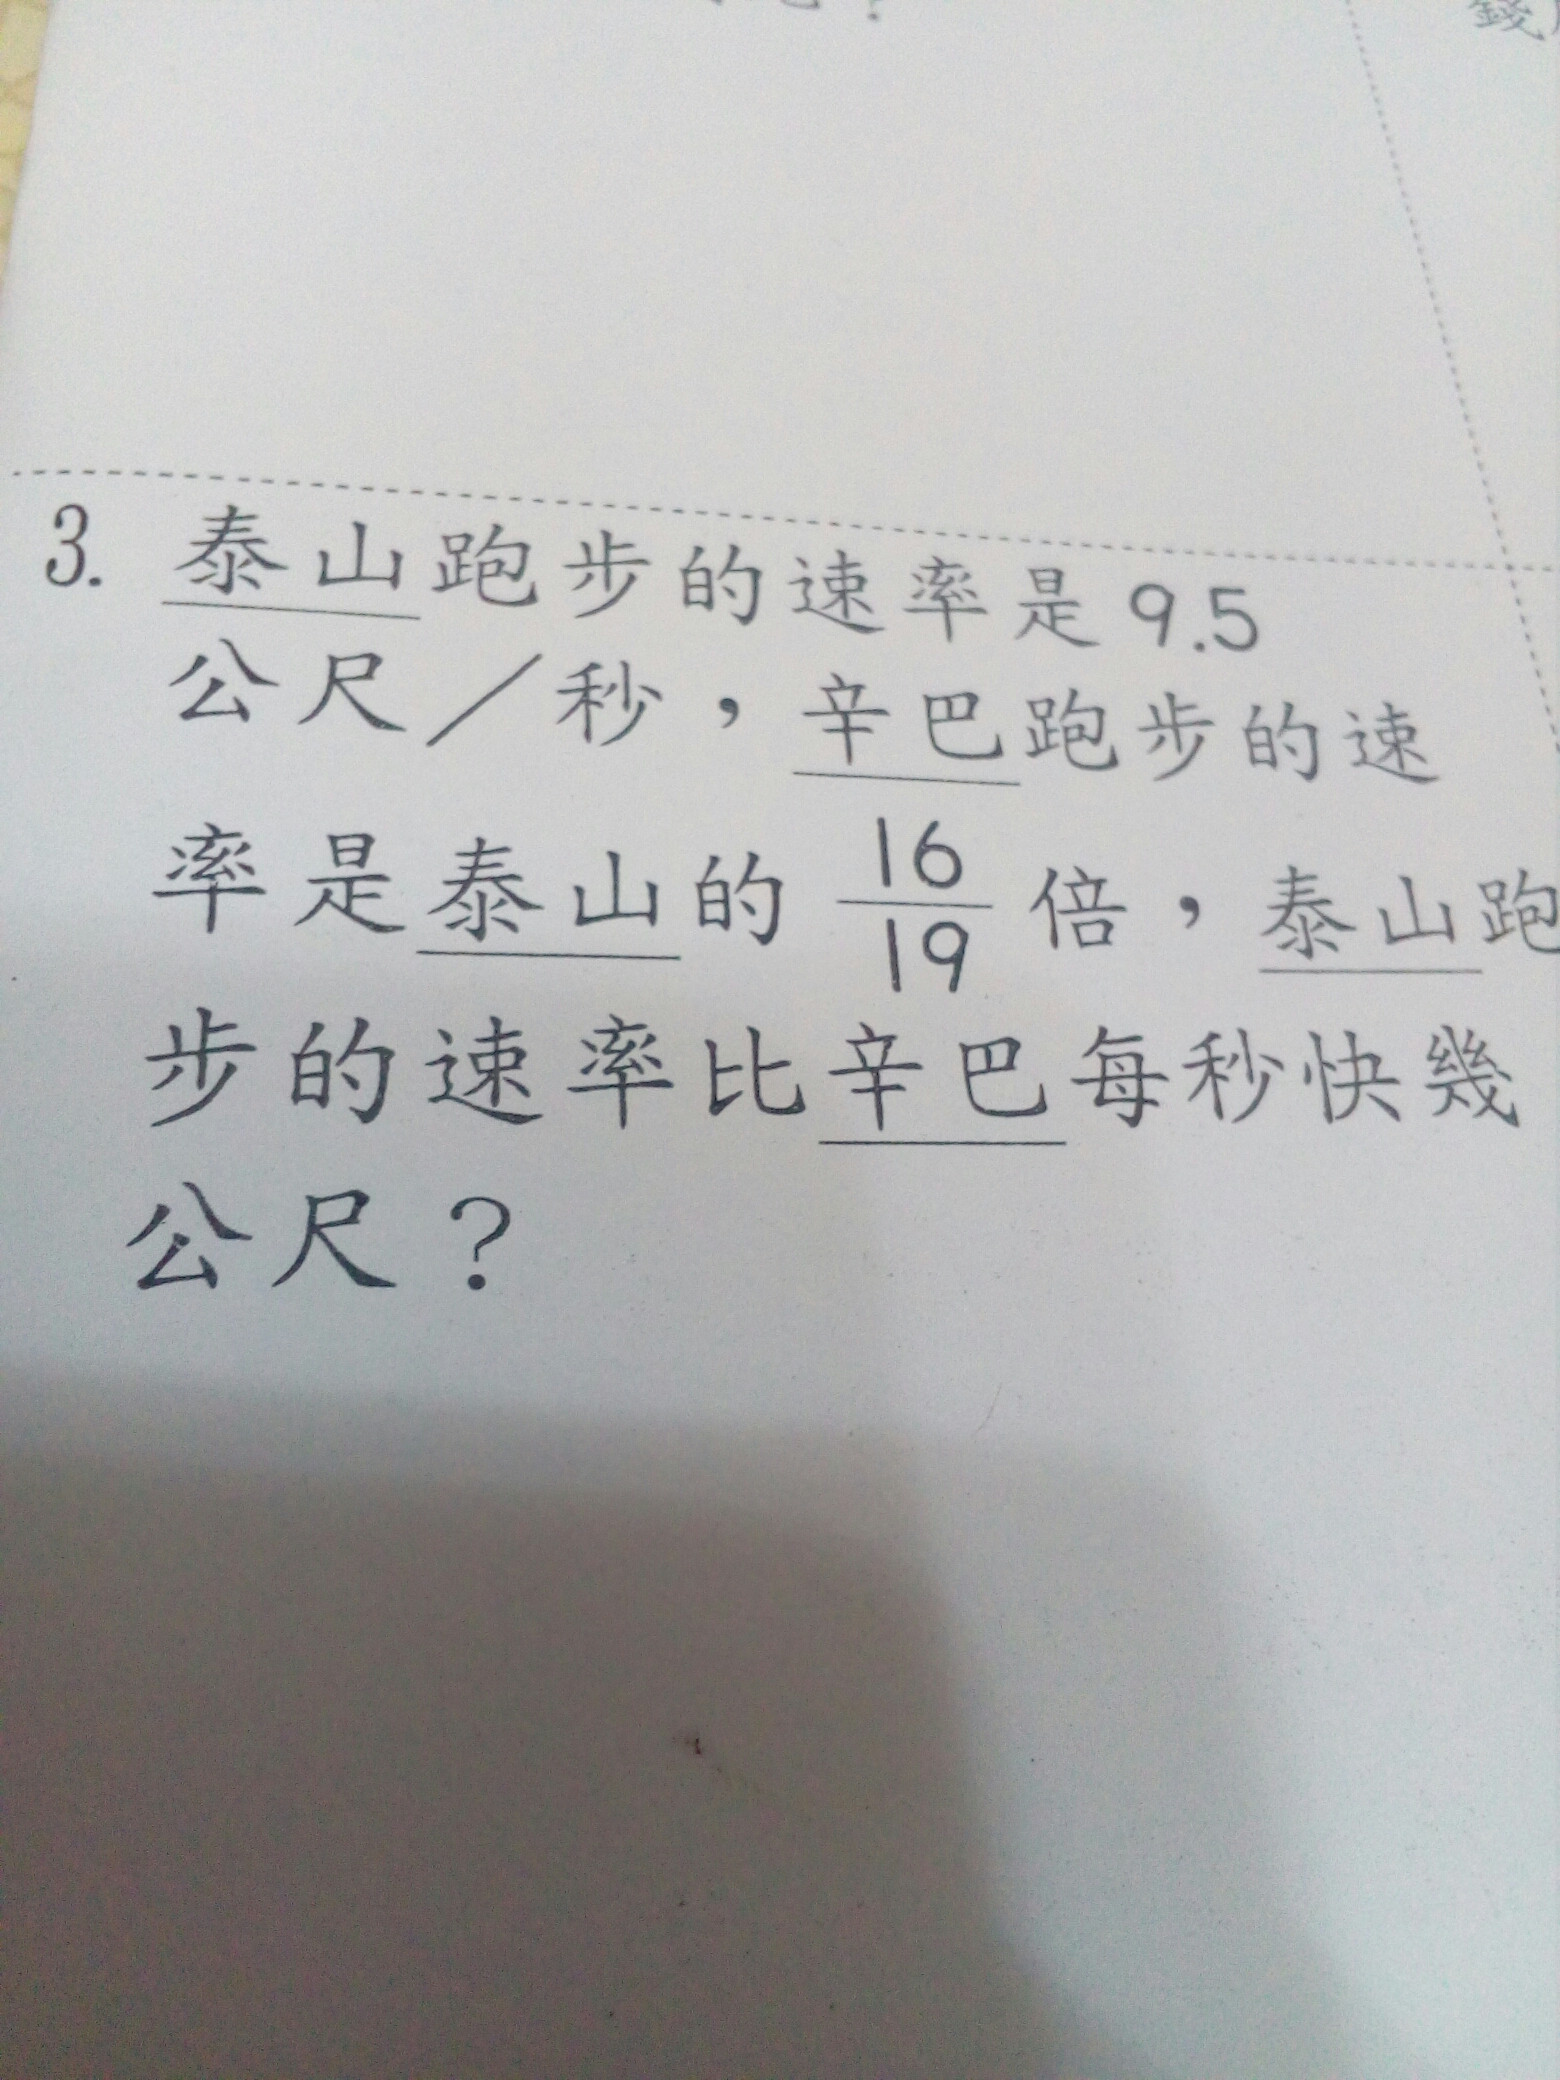 錢
3. 泰山跑步的速率是9.5
公尺／秒，辛巴跑步的速
率是泰山的 16/19 倍，泰山跑
步的速率比辛巴每秒快幾
公尺？